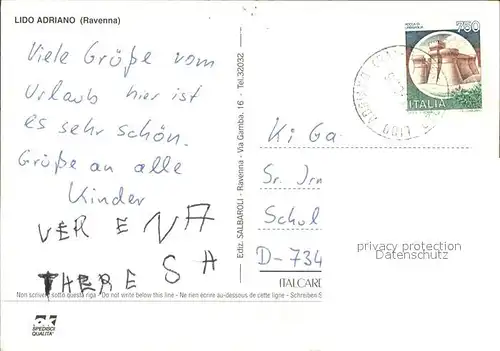 LIDO ADRIANO (Ravenna)
Viele Grüße vom
Urlaub hier ist
es sehr schön.
Grüße an alle
Kinder
VERENA
THERESA
Non scrivere sotto questa riga - Do not write below this line - Ne rien écrire au-dessous de cette ligne - Schreiben S
SPEDISCI
QUALITA'
Ediz. SALBAROLI - Ravenna - Via Gamba, 16 - Tel. 32032
ROCCA DI
URBISAGLIA
750
ITALIA
LIDO
Ki Ga
Sr. Irm
Schul
D-734
ITALCARD
privacy protection
Datenschutz